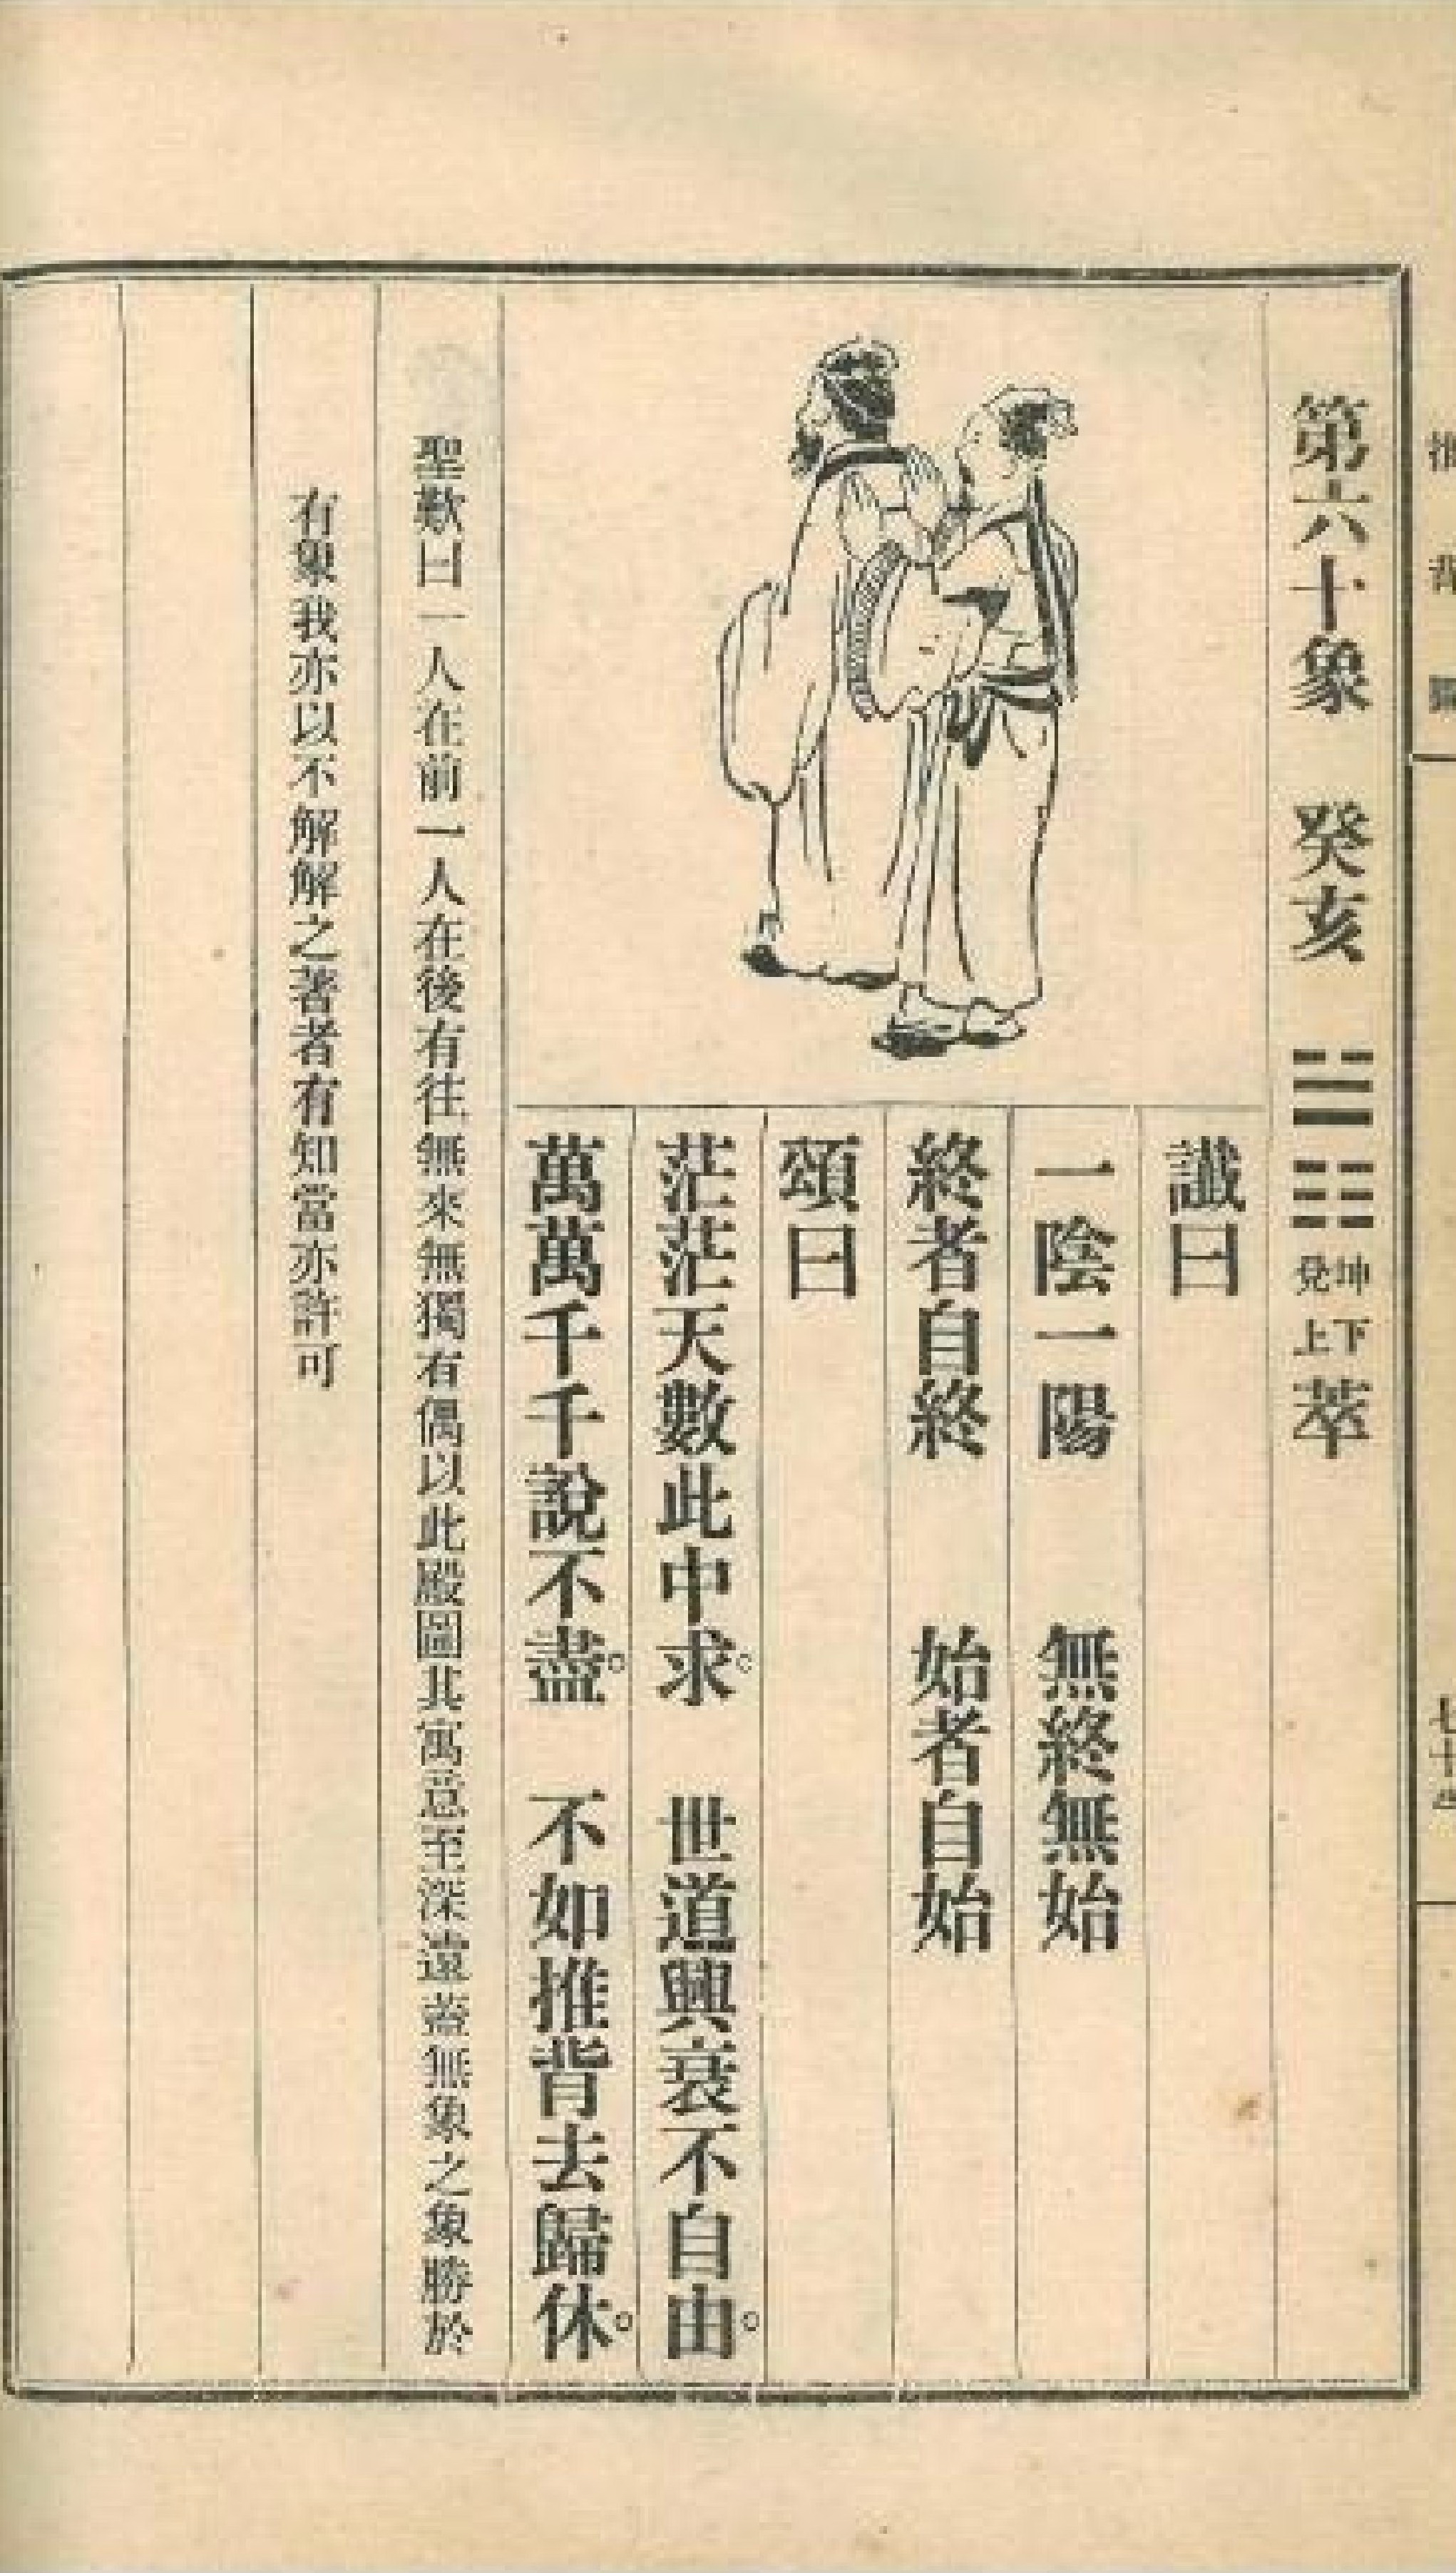 推背圖
第六十象 癸亥 ䷬ 坤下兌上 萃
讖曰
一陰一陽 無終無始
終者自終 始者自始
頌曰
茫茫天數此中求。 世道興衰不自由。
萬萬千千說不盡。 不如推背去歸休。
聖歎曰一人在前一人在後有往無來無獨有偶以此殿圖其寓意至深遠葢無象之象勝於
有象我亦以不解解之著者有知當亦許可